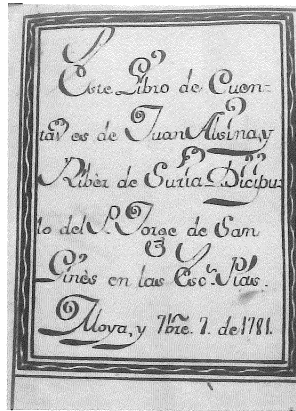 Este Libro de Cuen=
tas es de Juan Alsina, y
Ribèr de Suria= Dicipu=
lo del P. Jorge de San
Ginès en las Esc.s Pias.
Moya, y 7bre. 7. de 1781.